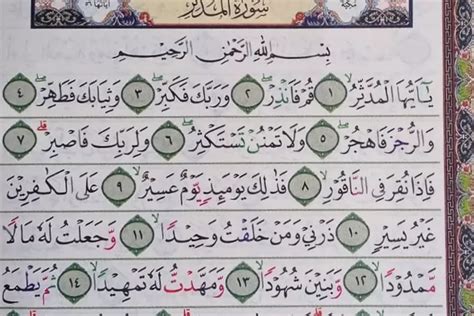 سورة المدثر
بِسْمِ اللهِ الرَّحْمٰنِ الرَّحِيْمِ
يٰٓاَيُّهَا الْمُدَّثِّرُ ۙ ١ قُمْ فَاَنْذِرْ ۖ ٢ وَرَبَّكَ فَكَبِّرْ ۖ ٣ وَثِيَابَكَ فَطَهِّرْ ۖ ٤
وَالرُّجْزَ فَاهْجُرْ ۖ ٥ وَلَا تَمْنُنْ تَسْتَكْثِرُ ۖ ٦ وَلِرَبِّكَ فَاصْبِرْ ۗ ٧
فَاِذَا نُقِرَ فِى النَّاقُوْرِ ۙ ٨ فَذٰلِكَ يَوْمَىِٕذٍ يَّوْمٌ عَسِيْرٌ ۙ ٩ عَلَى الْكٰفِرِيْنَ
غَيْرُ يَسِيْرٍ ١٠ ذَرْنِيْ وَمَنْ خَلَقْتُ وَحِيْدًا ۙ ١١ وَّجَعَلْتُ لَهٗ مَالًا
مَّمْدُوْدًا ۙ ١٢ وَّبَنِيْنَ شُهُوْدًا ۙ ١٣ وَّمَهَّدْتُّ لَهٗ تَمْهِيْدًا ۙ ١٤ ثُمَّ يَطْمَعُ